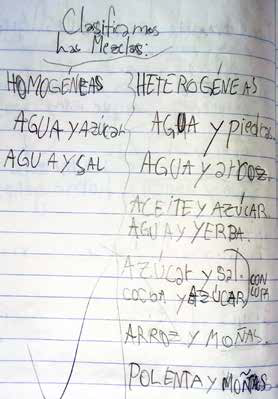 Clasificamos
las Mezclas:
HOMOGÉNEAS
AGUA Y AZÚCAR
AGUA Y SAL
HETEROGÉNEAS
AGUA y piedra
AGUA y arroz.
ACEITE Y AZÚCAR
AGUA Y YERBA.
AZÚCAR y SAL.
COCOA y AZÚCAR
CON LUPA
ARROZ Y MOÑAS.
POLENTA Y MOÑAS